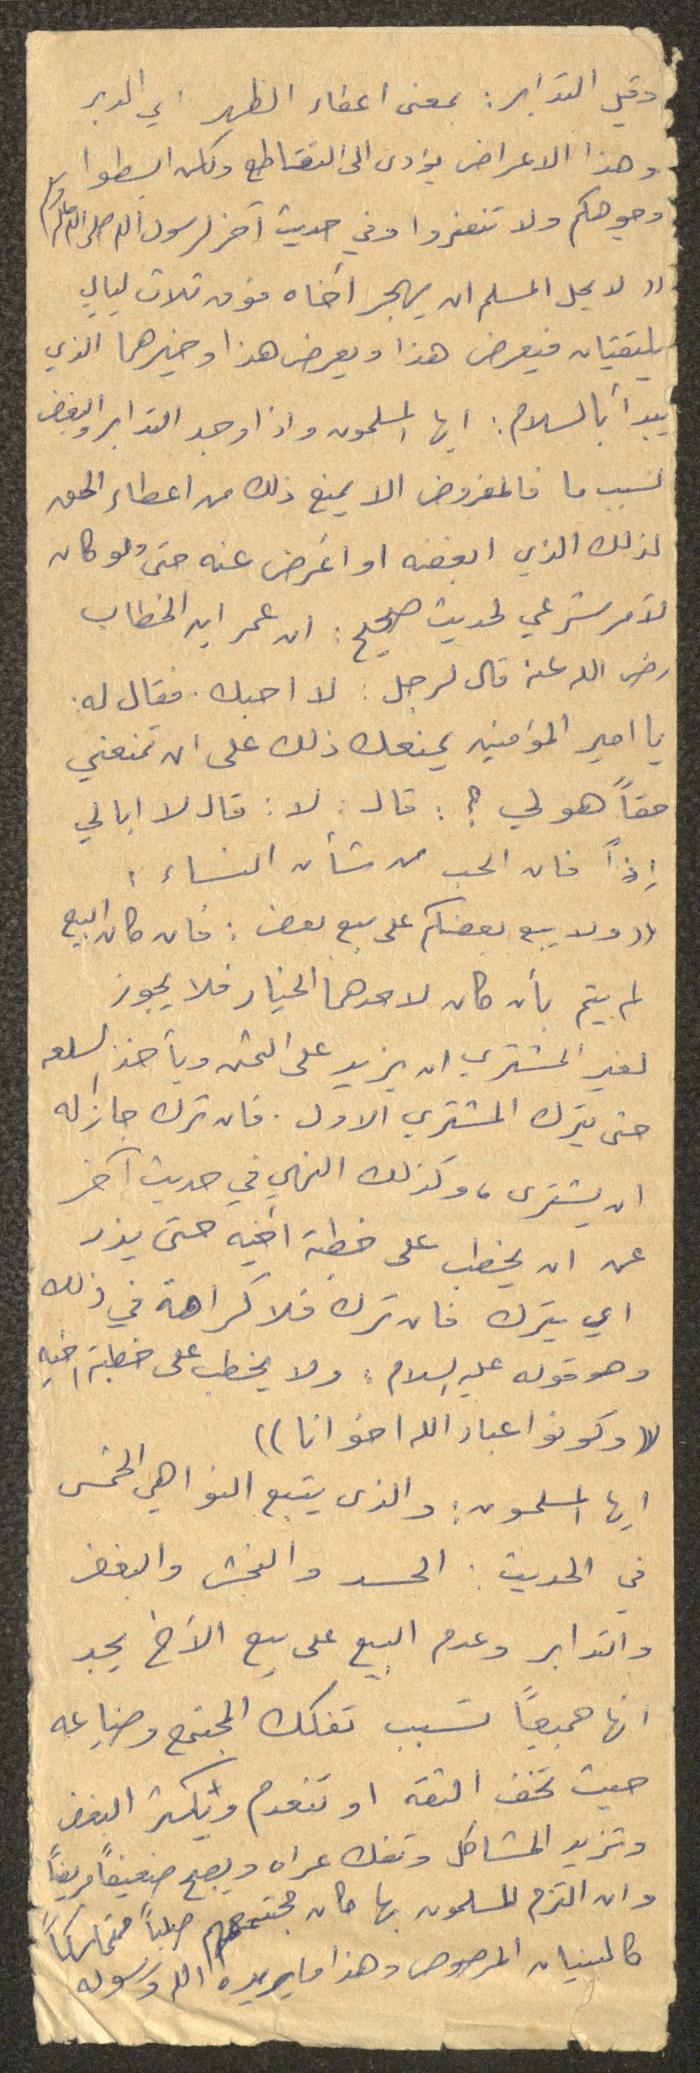 وقيل التدابر: بمعنى اعطاء الظهر اي الدبر
وهذا الاعراض يؤدى الى التقاطع ولكن ابسطوا
وجوهكم ولا تنفروا وفي حديث آخر لرسول الله صلى الله عليه وسلم
(( لا يحل لمسلم ان يهجر أخاه فوق ثلاث ليالي
يلتقيان فيعرض هذا ويعرض هذا وخيرهما الذي
يبدأ بالسلام: ايها المسلمون واذا وجد التدابر والبغض
لسبب ما فالمفروض الا يمنع ذلك من اعطاء الحق
لذلك الذي ابغضه او اعرض عنه حتى ولو كان
لأمر شرعي لحديث صحيح: ان عمر ابن الخطاب
رضي الله عنه قال لرجل: لا احبك. فقال له.
يا امير المؤمنين يمنعك ذلك على ان تمنعني
حقاً هو لي؟: قال: لا: قال لا ابالي
إذاً فان الحب من شأن النساء:
(( ولا يبع بعضكم على بيع بعض: فان كان البيع
لم يتم بأن كان لاحدهما الخيار فلا يجوز
لغير المشتري ان يزيد على الثمن ويأخذ السلعه
حتى يترك المشتري الاول. فان ترك جاز له
ان يشترى، وكذلك النهي في حديث آخر
عن ان يخطب على خطبة أخيه حتى يذر
اي يترك فان ترك فلا كراهة في ذلك
وهو قوله عليه السلام: ولا يخطب على خطبة اخيه
(( وكونوا عباد الله اخوانا ))
ايها المسلمون: والذى يتبع النواهي الخمس
في الحديث: الحسد والنجش والبغض
والتدابر وعدم البيع على بيع الأخ يجد
انها جميعاً تسبب تفكك المجتمع وضياعه
حيث تخف الثقه او تنعدم ويكثر البغض
وتزيد المشاكل وتفك عراه ويصبح ضعيفاً مريضاً
وان التزم المسلمون بها كان مجتمعهم صلباً متماسكاً
كالبنيان المرصوص وهذا ما يريده الله ورسوله